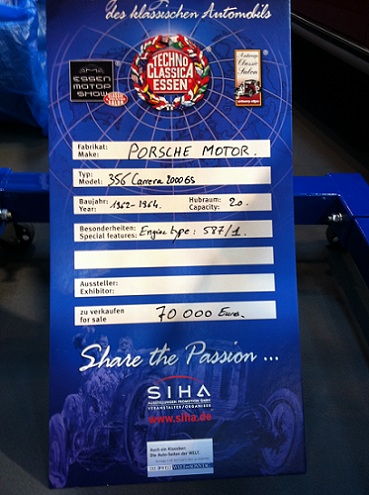 des klassischen Automobils
TECHNO
CLASSICA
ESSEN
ESSEN
MOTOR
SHOW
Classic
Salon
Fabrikat: PORSCHE MOTOR.
Make:
Typ: 356 Carrera 2000GS
Model:
Baujahr: 1962-1964. Hubraum: 2.0.
Year: Capacity:
Besonderheiten: Engine type: 587/1.
Special features:
Aussteller:
Exhibitor:
zu verkaufen 70 000 Euro.
for sale
Share the Passion ...
SIHA
AUSSTELLUNGEN PROMOTION GMBH
VERANSTALTER/ORGANISER
www.siha.de
Auch ein Klassiker:
Die Auto-Seiten der WELT.